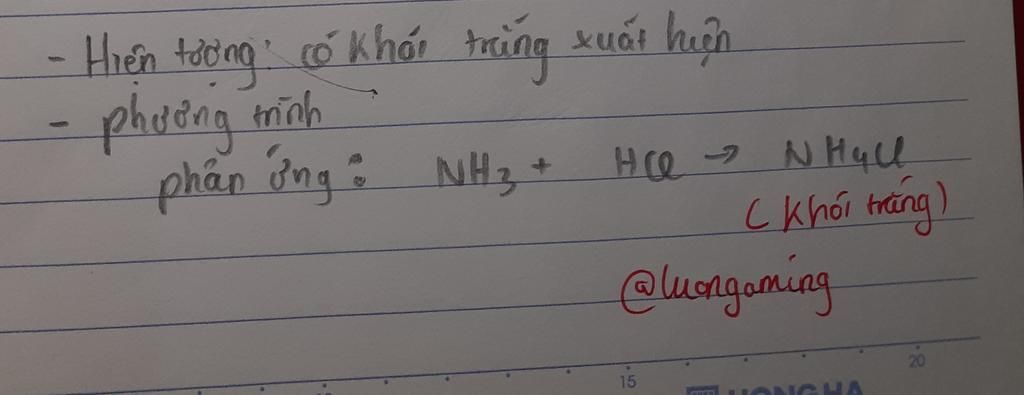 - Hiện tượng: có khói trắng xuất hiện
- phương trình
phản ứng: NH3 + HCl → NH4Cl
(khói trắng)
@luongaming
15
20
HONG HA